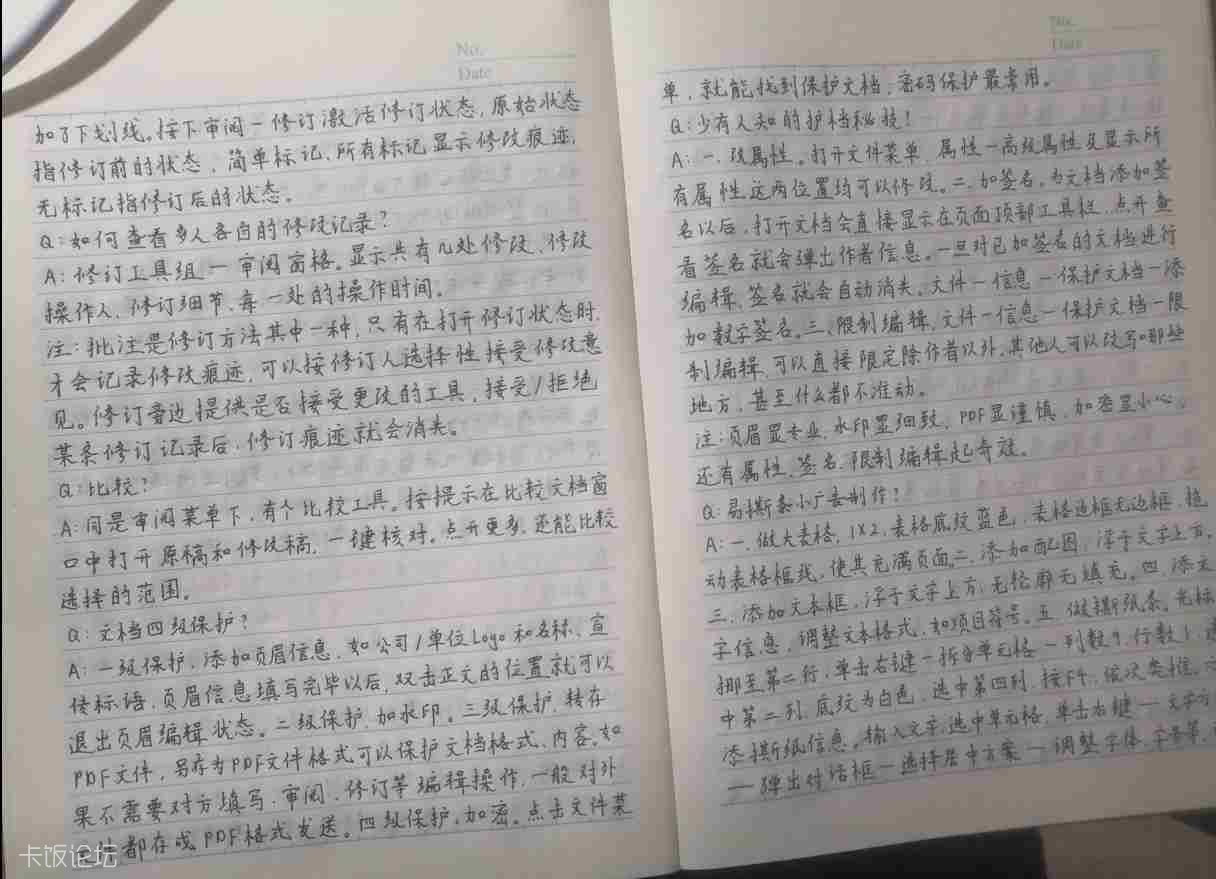 No.
Date
加了下划线。按下审阅一修订激活修订状态,原始状态
指修订前的状态,简单标记、所有标记显示修改痕迹,
无标记指修订后的状态。
Q:如何查看多人各自的修改记录?
A:修订工具组一审阅窗格。显示共有几处修改、修改
操作人、修订细节、每一处的操作时间。
注:批注是修订方法其中一种,只有在打开修订状态时,
才会记录修改痕迹,可以按修订人选择性接受修改意
见。修订旁边提供是否接受更改的工具,接受/拒绝
某条修订记录后,修订痕迹就会消失。
Q:比较?
A:同是审阅菜单下,有个比较工具。按提示在比较文档窗
口中打开原稿和修改稿,一键核对。点开更多,还能比较
选择的范围。
Q:文档四级保护?
A:一级保护,添加页眉信息,如公司/单位Logo和名称、宣
传标语,页眉信息填写完毕以后,双击正文的位置就可以
退出页眉编辑状态。二级保护,加水印。三级保护,转存
PDF文件,另存为PDF文件格式可以保护文档格式、内容,如
果不需要对方填写、审阅、修订等编辑操作,一般对外
都存成PDF格式发送。四级保护,加密。点击文件菜
卡饭论坛
No.
Date
单,就能找到保护文档,密码保护最常用。
Q:少有人知的护档秘技!
A:一、改属性。打开文件菜单,属性一高级属性及显示所
有属性这两位置均可以修改。二、加签名,为文档添加签
名以后,打开文档会直接显示在页面顶部工具栏,点开查
看签名就会弹出作者信息。一旦对已加签名的文档进行
编辑,签名就会自动消失。文件一信息一保护文档一添
加数字签名。三、限制编辑,文件一信息一保护文档一限
制编辑,可以直接限定除作者以外,其他人可以改写哪些
地方,甚至什么都不准动。
注:页眉显专业,水印显细致,PDF显谨慎,加密显小心,
还有属性、签名、限制编辑起奇效。
Q:易撕条小广告制作?
A:一、做大表格,1X2,表格底纹蓝色,表格边框无边框,拖
动表格框线,使其充满页面。二、添加配图,浮于文字上方。
三、添加文本框,浮于文字上方,无轮廓无填充。四、添文
字信息,调整文本格式,如项目符号。五、做撕纸条。光标
挪至第二行,单击右键一拆分单元格一列数9,行数1,选
中第二列,底纹为白色,选中第四列,按F4,依次类推。六
添撕纸信息。输入文字,选中单元格,单击右键一文字方
一弹出对话框一选择居中方案一调整字体、字号等,